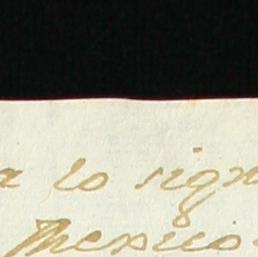 a lo sign
Mexico